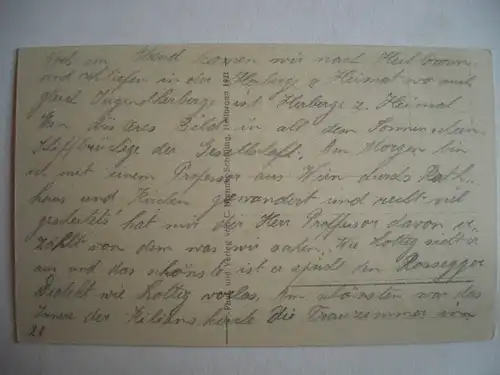 am Abend kamen wir nach Heilbronn
und schliefen in der Herberge z Heimat wo auch
gleich Jugendherberge ist Herberge z. Heimat
Ein düsteres Bild in all dem Sonnenschein
der Gesellschaft. Am Morgen bin
ich mit einem Professor aus Wien durchs Rat-
haus und Kirchen gewandert und recht viel
hat mir der Herr Proffesor davon er-
zählt von dem was wir sahen. Wie Lottig sieht er
aus und das schönste ist er spricht den Rosegger
Dialekt wie Lottig vorlas. Am schönsten war das
Innere der Kilians kirche die Trauzimmer von
28
Photo und Verlag von C. Schilling, Heilbronn 1921